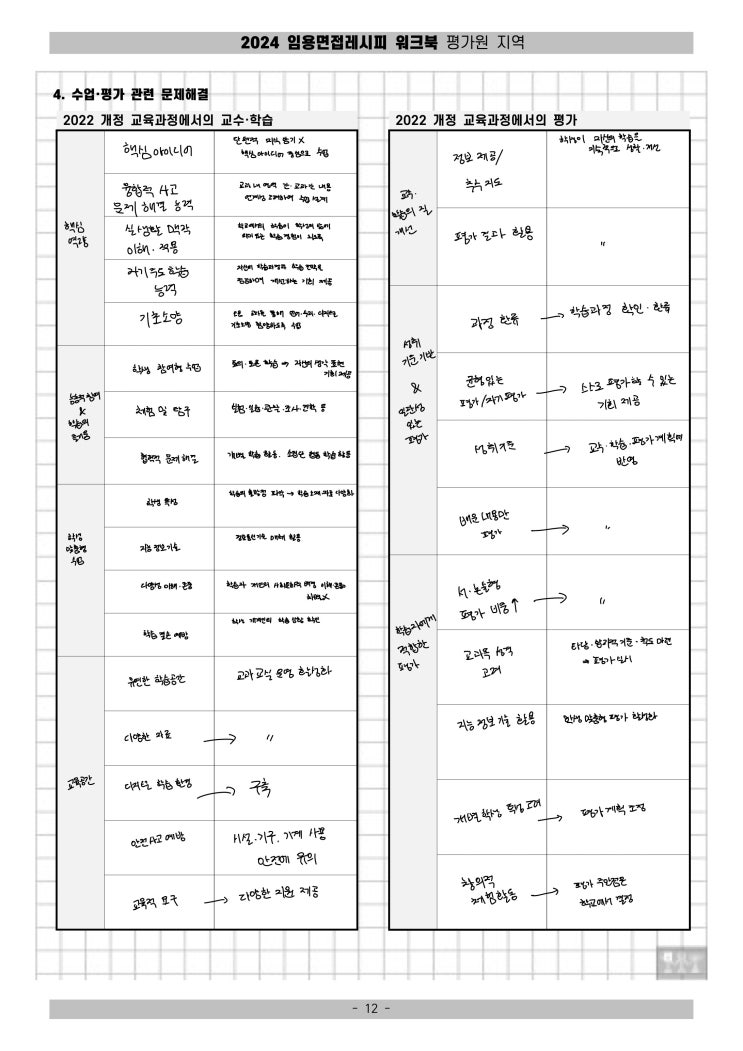 2024 임용면접레시피 워크북 평가원 지역
4. 수업·평가 관련 문제해결
2022 개정 교육과정에서의 교수·학습
핵심
역량
핵심 아이디어
단편적 지식 암기 X
핵심 아이디어 중심으로 수업
융합적 사고
문제 해결 능력
교과 내 영역 간·교과 간 내용
연계성 고려하여 수업 설계
실생활 맥락
이해·적용
학교에서의 학습이
의미 있는 학습 경험이 되도록
자기주도 학습
능력
자신의 학습과정과 학습 전략을
점검하며 개선하는 기회 제공
기초소양
모든 교과를 통해 언어·수리·디지털
기초소양 함양하도록 수업
능동적 참여
&
학습의
즐거움
학생 참여형 수업
토의·토론 학습 → 자신의 생각 표현
기회 제공
체험 및 탐구
실험·실습·관찰·조사·견학 등
협력적 문제해결
개별 학습 활동, 소집단 협동 학습 활동
학생
맞춤형
수업
학생 특성
학습의 출발점 파악 → 학습 소재·자료 다양화
지능 정보기술
정보통신기술 매체 활용
다양성 이해·존중
학습자 개인의 사회문화적 배경 이해·존중
차별 X
학습 결손 예방
학생 개개인의 학습 상황 확인
교육공간
유연한 학습공간
교과 교실 운영 활성화
다양한 자료 → "
디지털 학습 환경 → 구축
안전사고 예방
시설·기구, 기계 사용
안전에 유의
교육적 요구 → 다양한 지원 제공
2022 개정 교육과정에서의 평가
교수·
학습의 질
개선
정보 제공/
추수 지도
학생이 자신의 학습을
지속적으로 성찰·개선
평가 결과 활용
"
성취
기준 기반
&
일관성
있는
평가
과정 환류 → 학습과정 확인·환류
균형있는
평가/자기평가 → 스스로 평가할 수 있는
기회 제공
성취기준 → 교수·학습·평가 계획에
반영
배운 내용만
평가 → "
학습자에게
적합한
평가
서·논술형
평가 비중↑ → "
교과목 성격
고려
타당·합리적 기준·척도 마련
→ 평가 실시
지능 정보 기술 활용
학생 맞춤형 평가 활성화
개별 학생 특성 고려 → 평가 계획 조정
창의적
체험활동 → 평가 주안점은
학교에서 결정
- 12 -